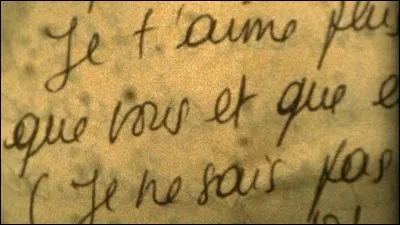 Je t'aime plus
que vous et que e
( Je ne sais pas